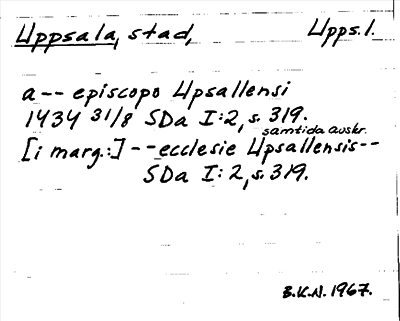 Uppsala, stad, Upps.l.
a-- episcopo Upsallensi
1434 31/8 SDa I:2, s. 319.
samtida avskr.
[i marg.:] --ecclesie Upsallensis--
SDa I:2, s. 319.
B.K.N. 1967.